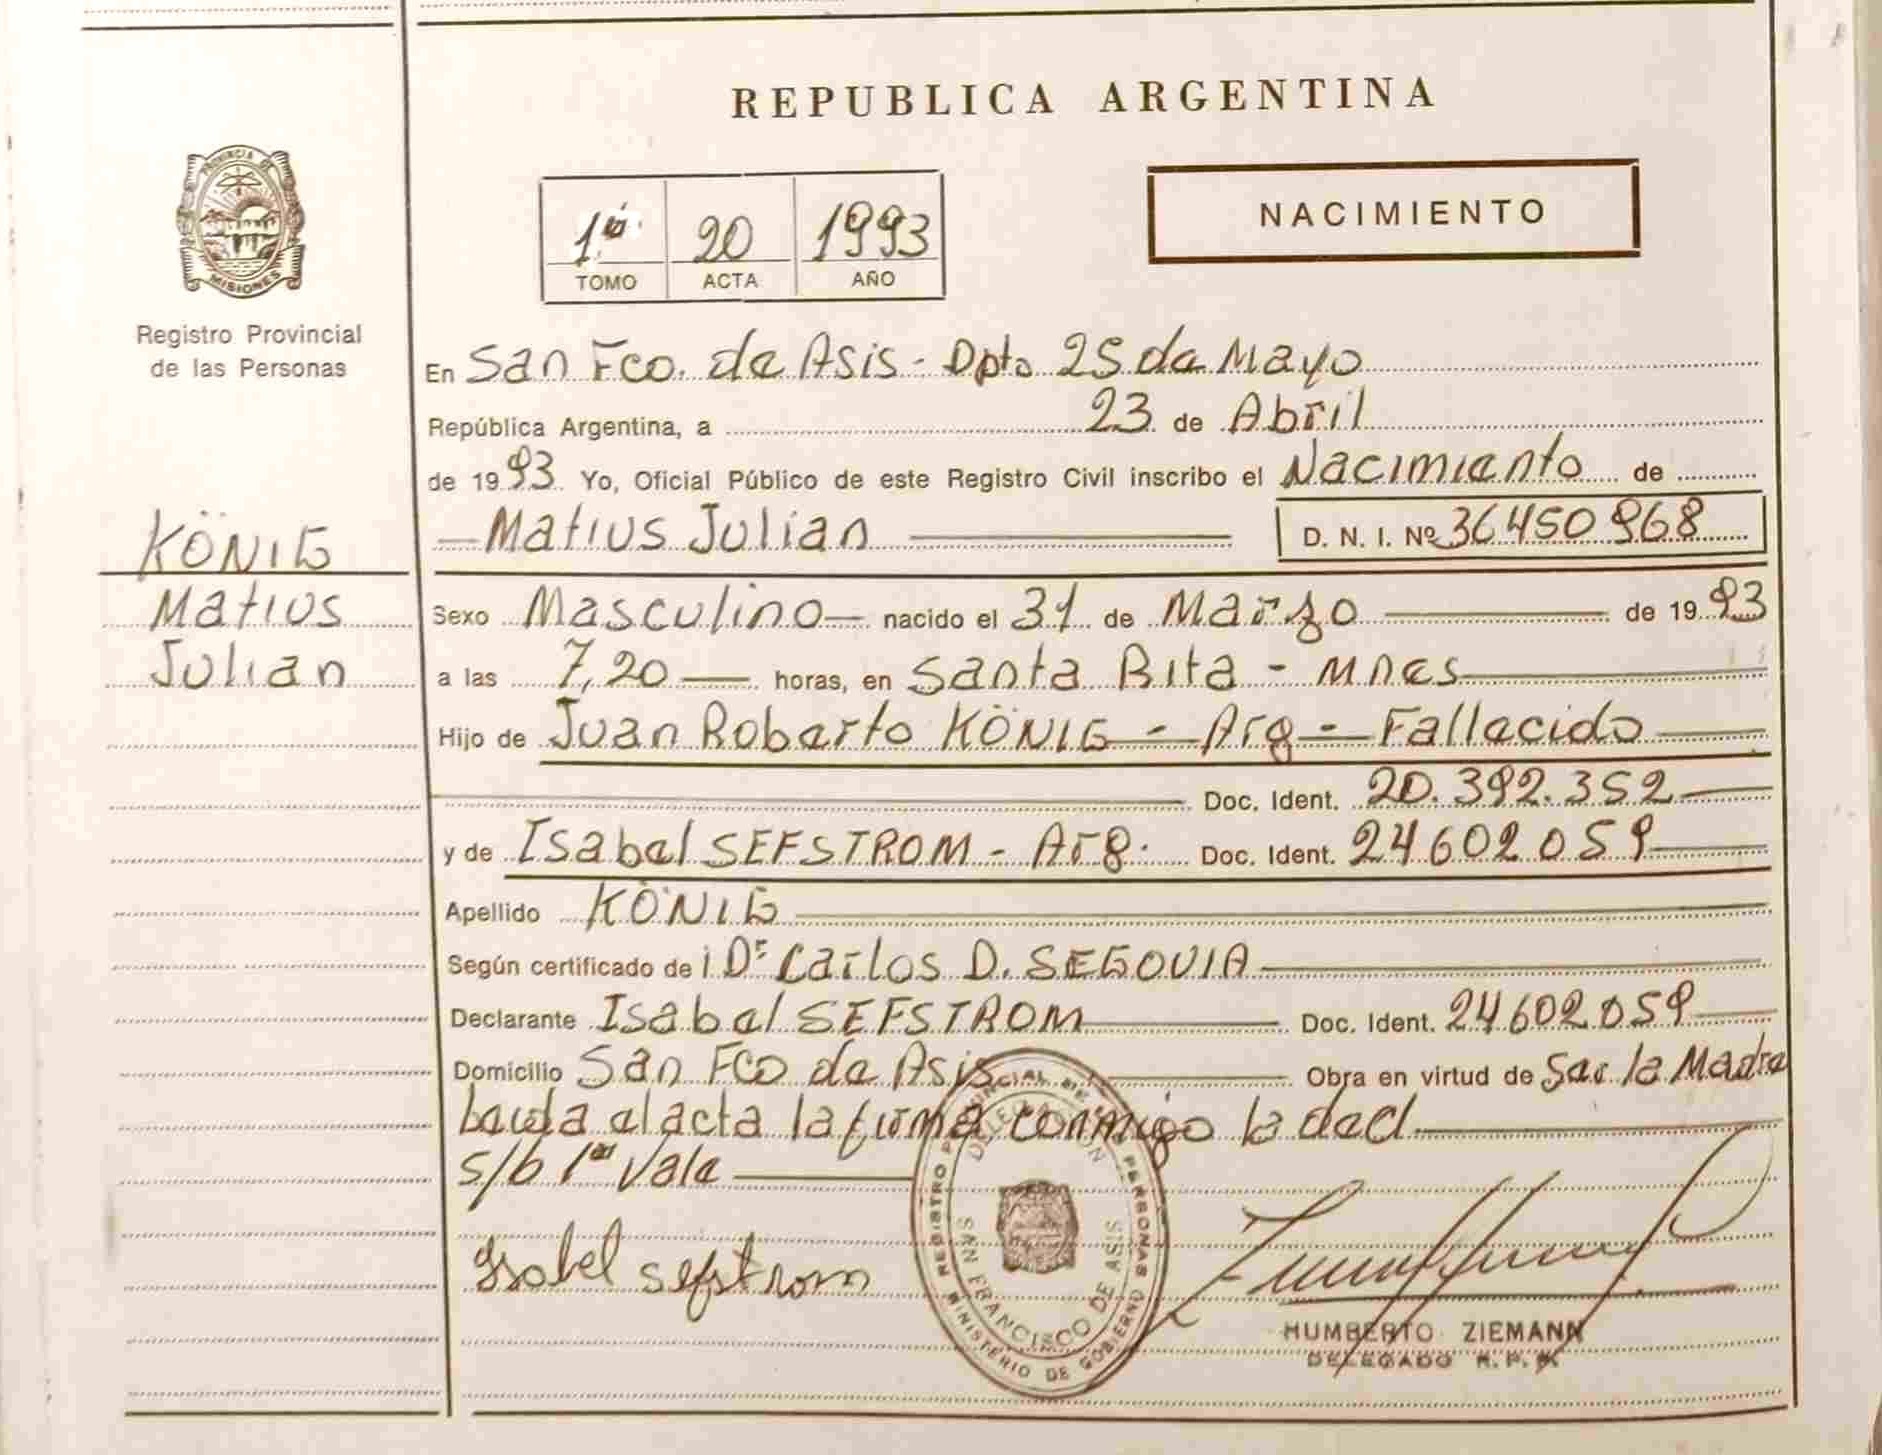 REPUBLICA ARGENTINA
PROVINCIA DE
MISIONES
Registro Provincial
de las Personas
1º 20 1993
TOMO ACTA AÑO
NACIMIENTO
En San Fco. de Asis - Dpto 25 de Mayo
República Argentina, a 23 de Abril
de 1993 Yo, Oficial Público de este Registro Civil inscribo el Nacimiento de
KÖNIG
Matius
Julian
Matius Julian D. N. I. Nº 36450968
Sexo Masculino nacido el 31 de Marzo de 1993
a las 7,20 horas, en Santa Rita - Mnes
Hijo de Juan Roberto KÖNIG - Arg - Fallecido
Doc. Ident. 20.392.352
y de Isabel SEFSTROM - Arg. Doc. Ident. 24602059
Apellido KÖNIG
Según certificado de Dr Carlos D. SEGOVIA
Declarante Isabel SEFSTROM Doc. Ident. 24602059
Domicilio San Fco de Asis Obra en virtud de Ser la Madre
el acta la firma conmigo la decl.
s/b 1º Vale
Isabel Sefstrom
REGISTRO PROVINCIAL DE PERSONAS
DELEGACION
SAN FRANCISCO DE ASIS
MINISTERIO DE GOBIERNO
HUMBERTO ZIEMANN
DELEGADO R. P.